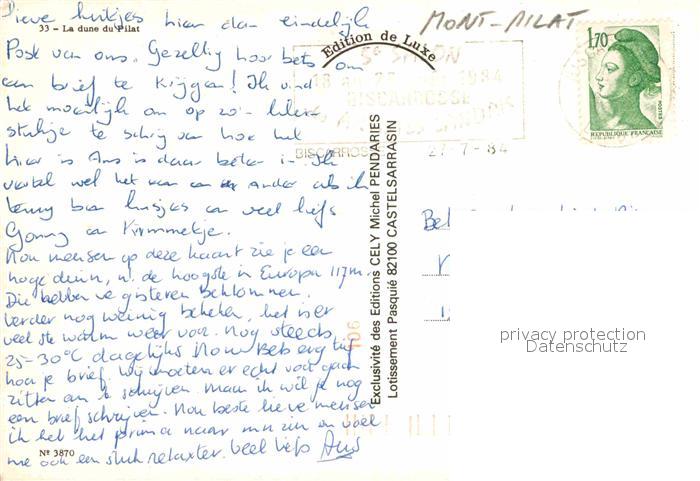 Lieve huisjes hier dan eindelijk
33 - La dune du Pilat
Post van ons. Gezellig hoor Bets om
een brief te krijgen! Ik vind
het moeilijk om op zo'n klein
stukje te schrijven hoe het
hier is Ans is daar beter in. Ik
vertel wel het een en ander als ik
terug ben kusjes en veel liefs
Gonny en Krommetje.
Nou mensen op deze kaart zie je een
hoge duin, n.l. de hoogste in Europa 117m.
Die hebben we gisteren beklommen.
Verder nog weinig bekeken, het is er
veel te warm weer voor. Nog steeds
25-30°C dagelijks. Nou Beb erg fijn
hoor je brief. Wij moeten er echt voor gaan
zitten om te schrijven maar ik wil je nog
een brief schrijven. Nou beste lieve mensen
ik heb het prima naar m'n zin en voel
me ook een stuk relaxter. Veel liefs Ans
Nº 3870
Edition de Luxe
Exclusivité des Editions CELY Michel PENDARIES
Lotissement Pasquié 82100 CASTELSARRASIN
MONT-PILAT
1984
BISCARROSSE
27-7-84
1,70
POSTES
REPUBLIQUE FRANÇAISE
106
privacy protection
Datenschutz